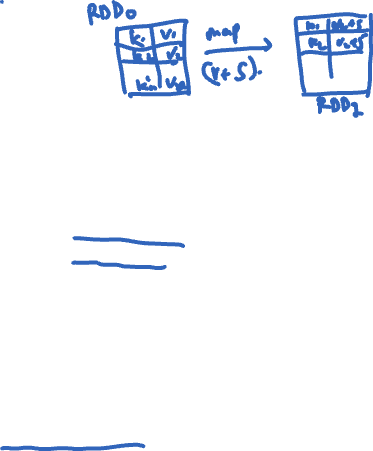 RDD₀
k₁ v₁
k₂ v₂
kₙ vₙ
map
(v+5).
k₁ v₁+5
k₂ v₂+5
RDD₂